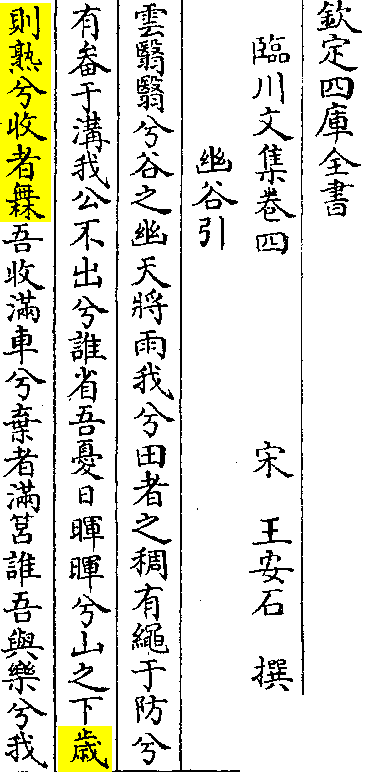 欽定四庫全書
臨川文集卷四
宋 王安石 撰
幽谷引
雲翳翳兮谷之幽天將雨我兮田者之稠有繩于防兮
有畚于溝我公不出兮誰省吾憂日暉暉兮山之下歲
則熟兮收者舞吾收滿車兮棄者滿筥誰吾與樂兮我